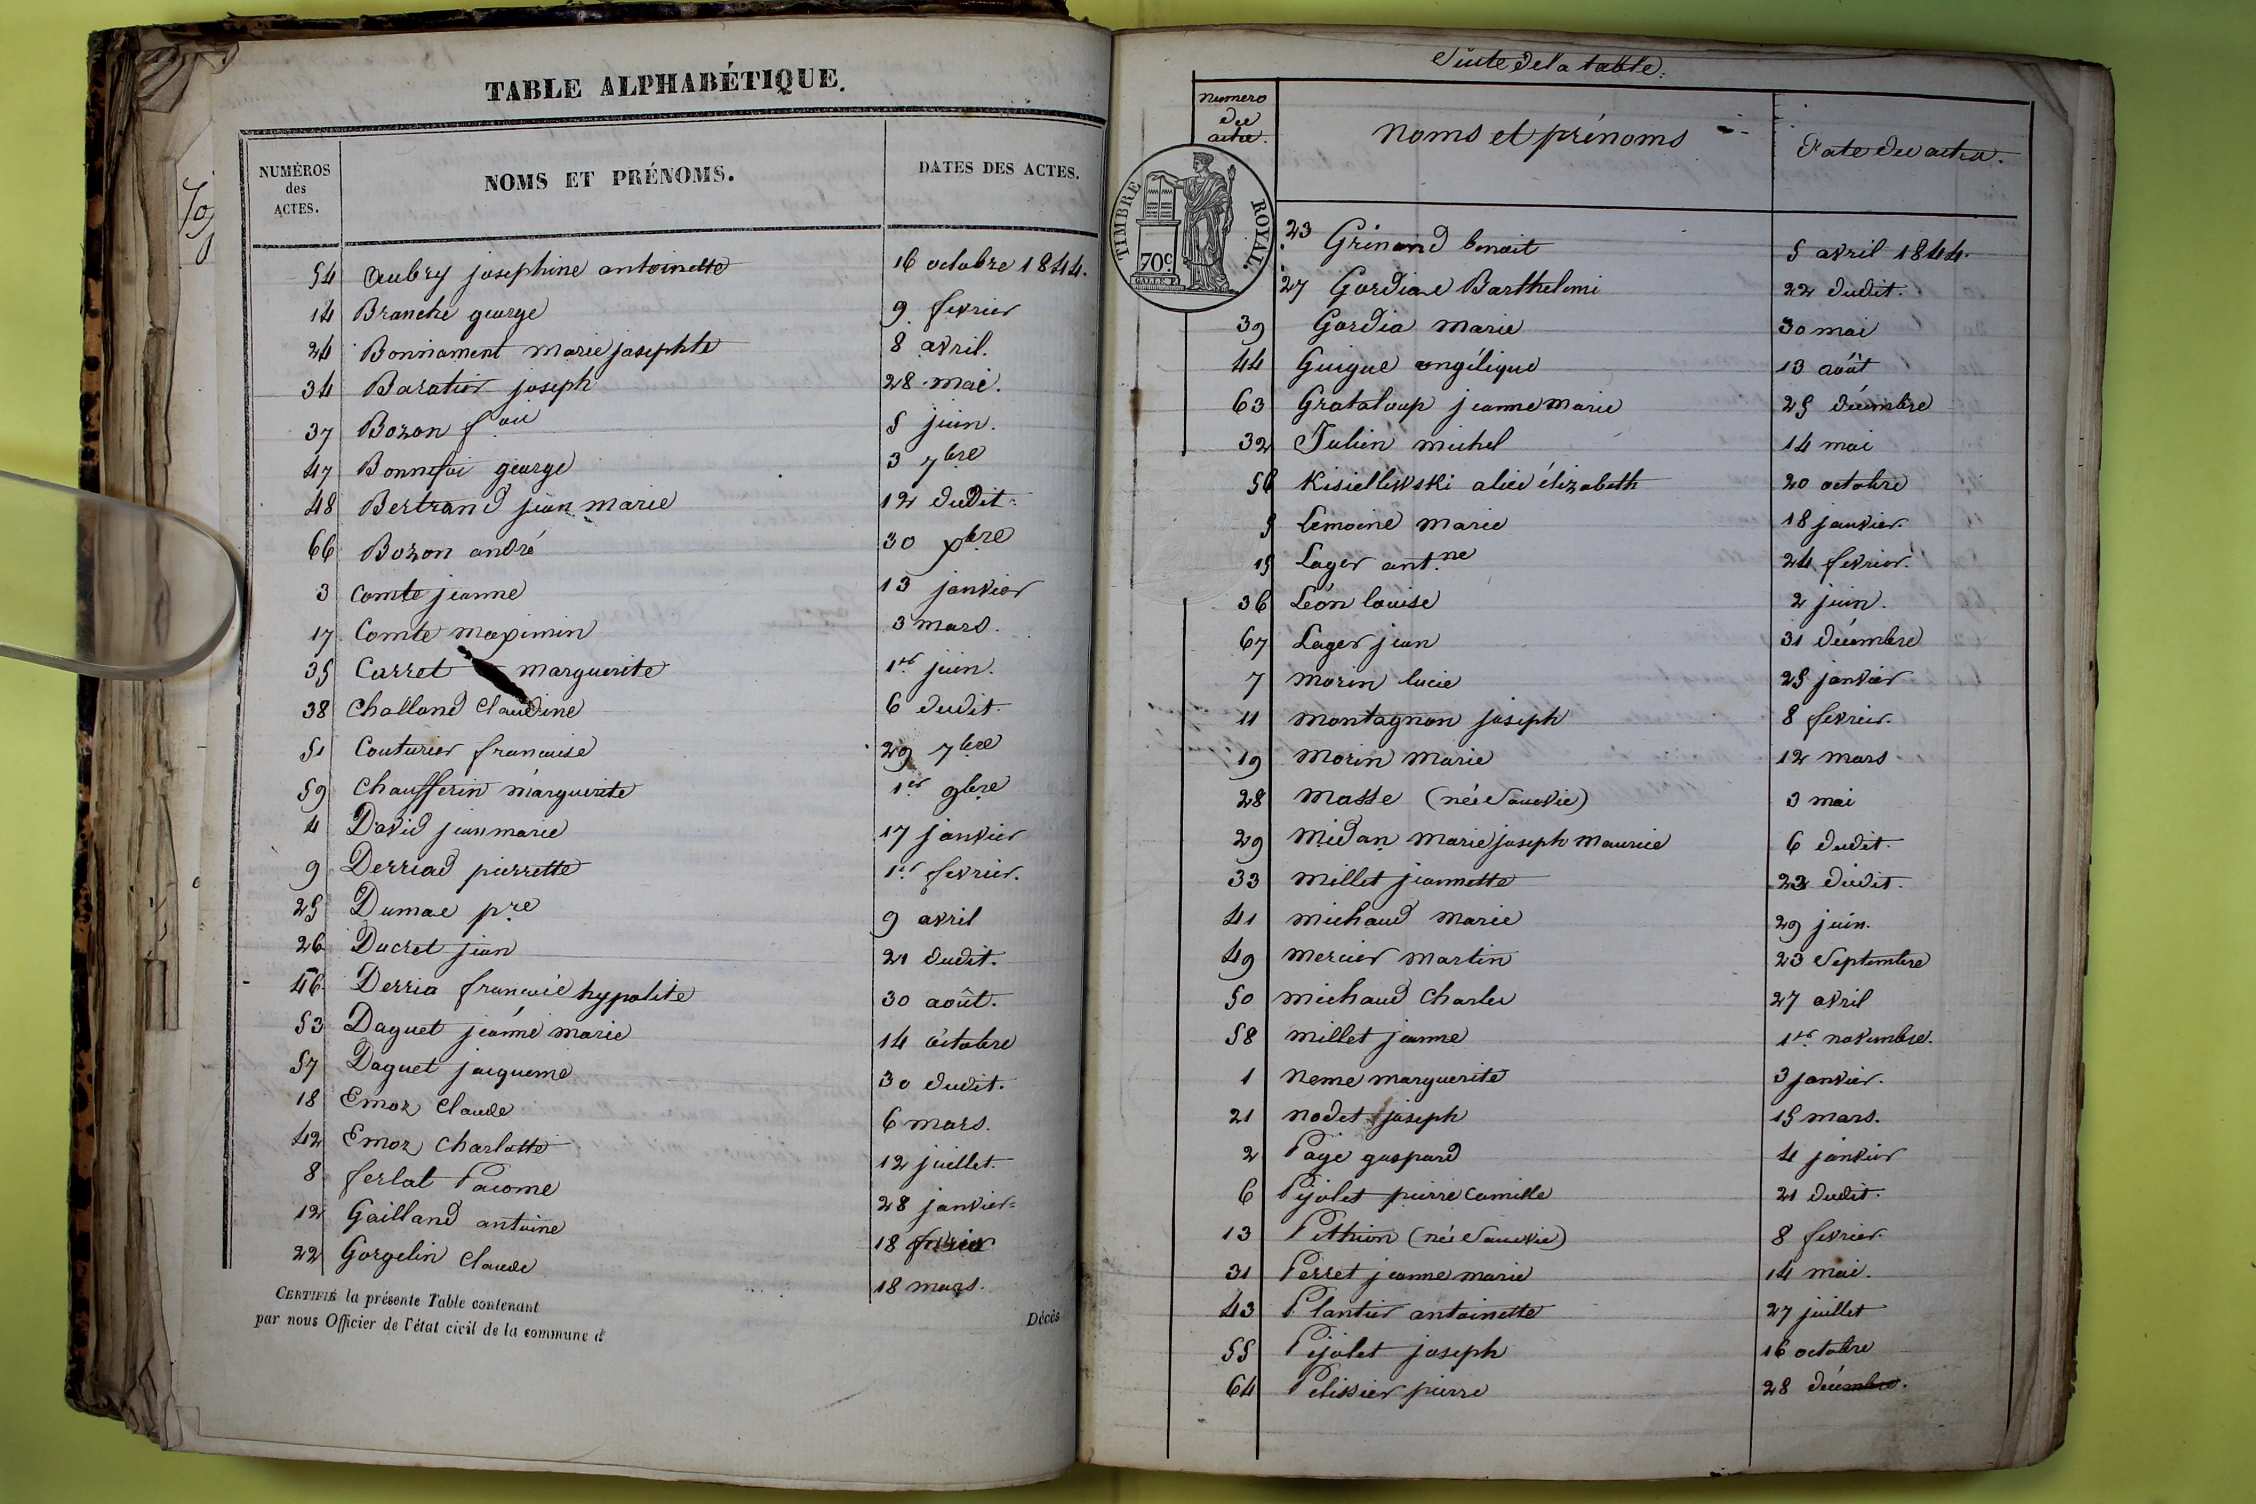 TABLE ALPHABÉTIQUE.
NUMÉROS des ACTES. NOMS ET PRÉNOMS. DATES DES ACTES.
54 Aubry josephine antoinette 16 octobre 1844.
14 Branche george 9 fevrier
24 Bonniament marie josephte 8 avril.
34 Baratier joseph 28 mai.
37 Bozon f.ois 5 juin.
47 Bonnefoi george 3 7bre
48 Bertrand jean marie 12 dudit.
66 Bozon andré 30 xbre
3 Comte jeanne 13 janvier
17 Comte maximin 3 mars.
35 Carret marguerite 1er juin.
38 Challand Claudine 6 dudit.
51 Couturier francoise 29 7bre
59 Chaufferin marguerite 1er 9bre
4 David jean marie 17 janvier
9 Derriad pierrette 1er fevrier.
25 Dumae pre 9 avril
26 Ducret jean 21 dudit.
46 Derria francoié hypolite 30 août.
53 Daguet jeanne marie 14 octobre
57 Daguet jacqueme 30 dudit.
18 Emoz Claude 6 mars.
42 Emoz Charlotte 12 juillet.
8 ferlat Pacome 28 janvier
12 Gailland antoine 18 fevrier
22 Gorgelin Claude 18 mars.
CERTIFIÉ la présente Table contenant Décès
par nous Officier de l'état civil de la commune d
Suite de la table.
Numero des actes. Noms et prénoms Date des actes.
TIMBRE ROYAL.
70c
23 Grinand benoit 5 avril 1844.
27 Gordiae Barthelemi 22 dudit.
39 Gordia marie 30 mai
44 Guigue angélique 13 août
63 Grataloup jeanne marie 25 décembre
32 Julien michel 14 mai
56 Kisiellewski alice élizabeth 20 octobre
5 Lemoine marie 18 janvier.
15 Lager ant.ne 24 fevrier.
36 Léon louise 2 juin.
67 Lager jean 31 décembre
7 morin lucie 25 janvier
11 montagnon joseph 8 fevrier.
19 morin marie 12 mars
28 masse (née Sauvie) 3 mai
29 midan marie joseph maurice 6 dudit.
33 millet jeannette 23 dudit.
41 michaud marie 29 juin.
49 mercier martin 23 Septembre
50 michaud Charles 27 avril
58 millet jeanne 1er novembre.
1 neme marguerite 3 janvier.
21 nodet joseph 15 mars.
2 Page gaspard 4 janvier
6 Pijolet pierre camille 21 dudit.
13 Pethion (née Sauvie) 8 fevrier.
31 Perret jeanne marie 14 mai.
43 Plantier antoinette 27 juillet
55 Pijolet joseph 16 octobre
64 Pelissier pierre 28 décembre.